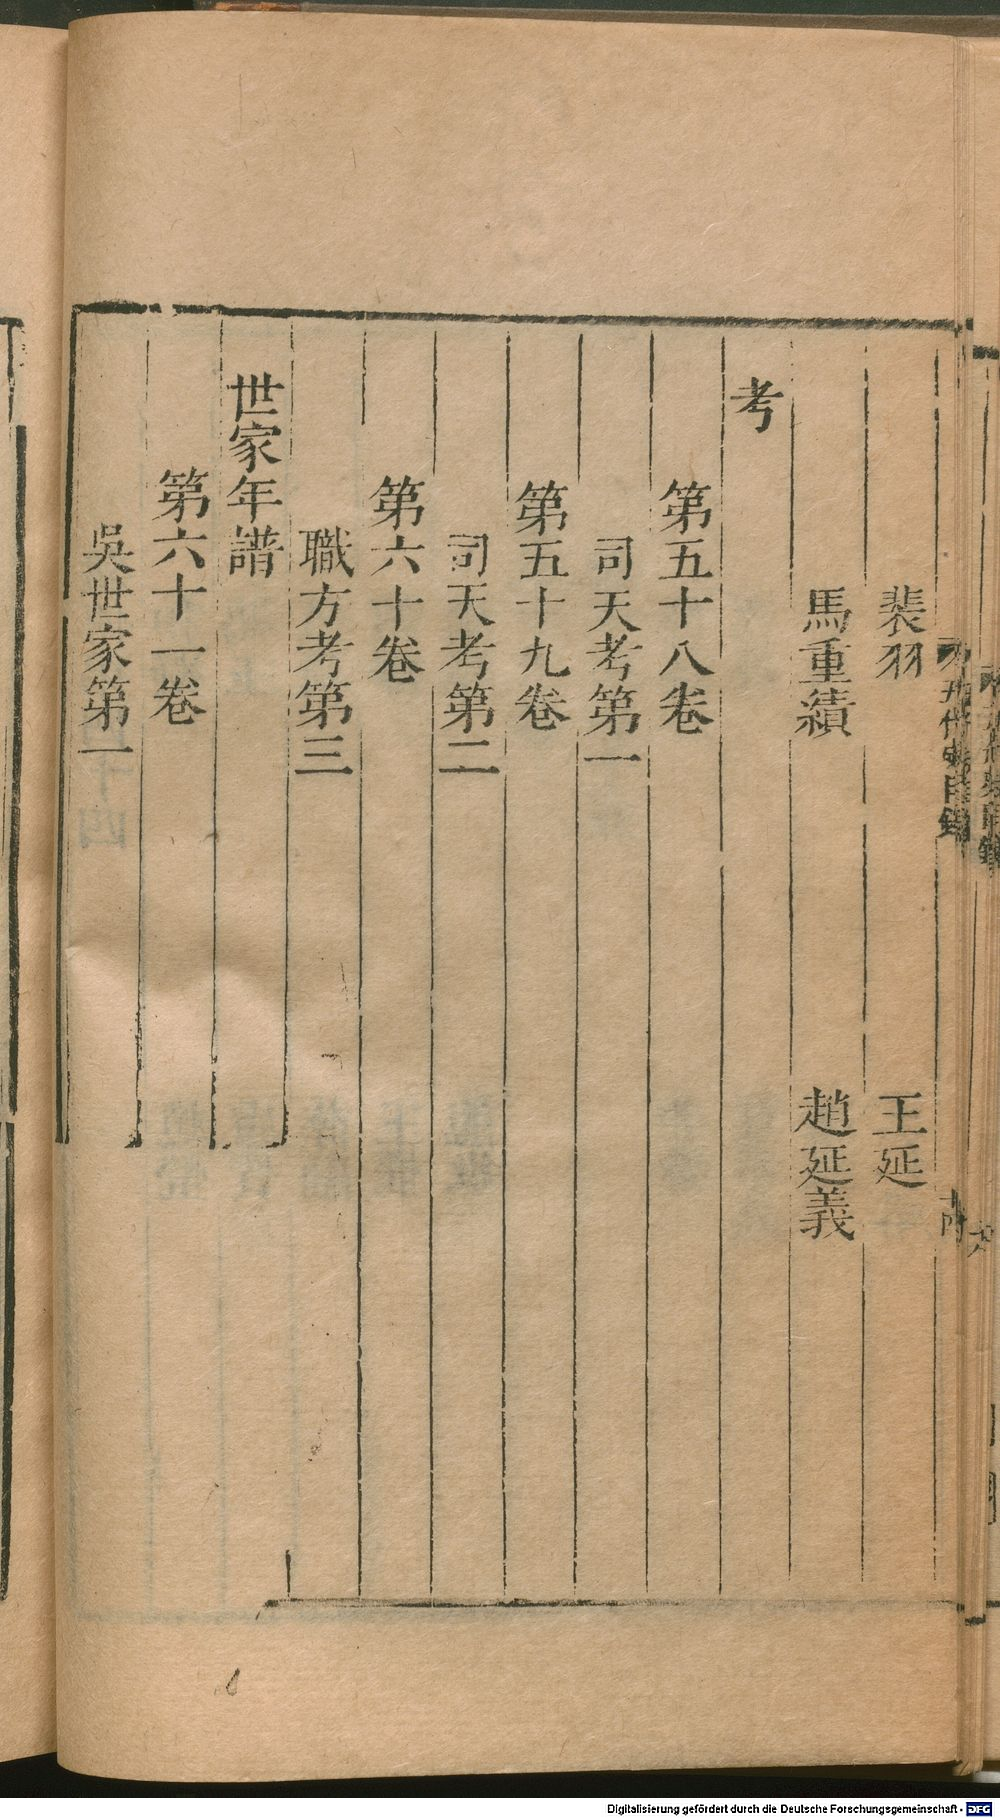 裴羽　王延
馬重績　趙延義
考
第五十八卷
司天考第一
第五十九卷
司天考第二
第六十卷
職方考第三
世家年譜
第六十一卷
吳世家第一
五代史目錄
Digitalisierung gefördert durch die Deutsche Forschungsgemeinschaft - DFG